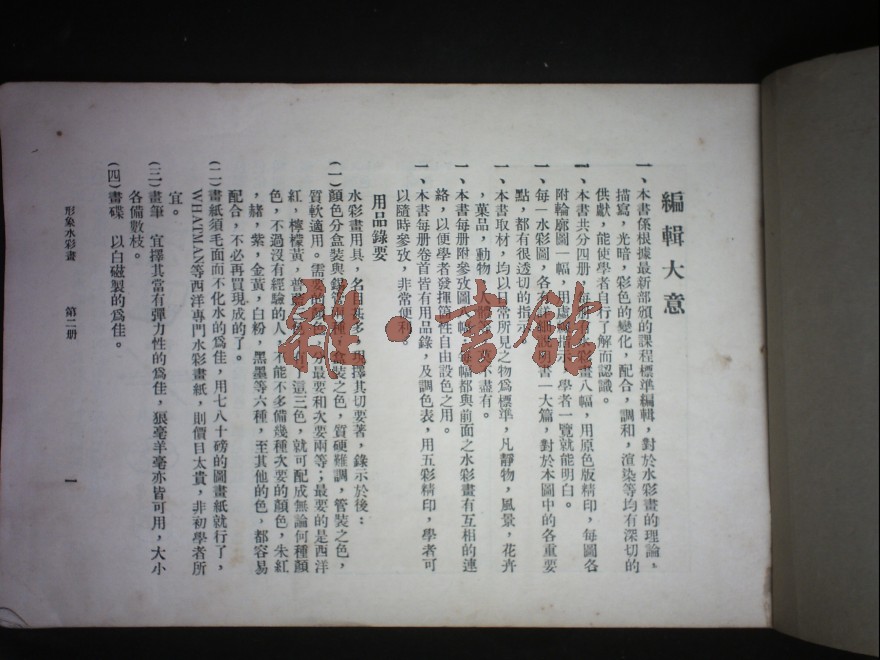 編輯大意
一、本書係根據最新部頒的課程標準編輯，對於水彩畫的理論，
描寫，光暗，彩色的變化，配合，調和，渲染等均有深切的
供獻，能使學者自行了解而認識。
一、本書共分四册，每册有水彩畫八幅，用原色版精印，每圖各
附輪廓圖一幅，用虛線指示，學者一覽就能明白。
一、每一水彩圖，各有詳細說明書一大篇，對於本圖中的各重要
點，都有很透切的指示。
一、本書取材，均以日常所見之物爲標準，凡靜物，風景，花卉
，菓品，動物，人體，盡有。
一、本書每册附參攷圖幅，每幅都與前面之水彩畫有互相的連
絡，以便學者發揮個性自由設色之用。
一、本書每册卷首皆有用品錄，及調色表，用五彩精印，學者可
以隨時參攷，非常便利
用品錄要
水彩畫用具，名目甚多，現擇其切要著，錄示於後：
(一)顏色分盒裝與鉛管兩種，盒裝之色，質硬難調，管裝之色，
質軟適用。需要的顏色，分最要和次要兩等；最要的是西洋
紅，檸檬黃，普藍三色，有了這三色，就可配成無論何種顏
色，不過沒有經驗的人，不能不多備幾種次要的顏色，朱紅
，赭，紫，金黃，白粉，黑墨等六種，至其他的色，都容易
配合，不必再買現成的了。
(二)畫紙須毛面而不化水的爲佳，用七八十磅的圖畫紙就行了，
WHATMAN等西洋專門水彩畫紙，則價目太貴，非初學者所
宜。
(三)畫筆　宜擇其富有彈力性的爲佳，狼毫羊毫亦皆可用，大小
各備數枝。
(四)畫碟　以白磁製的爲佳。
形象水彩畫　第二册
一
雜·書館